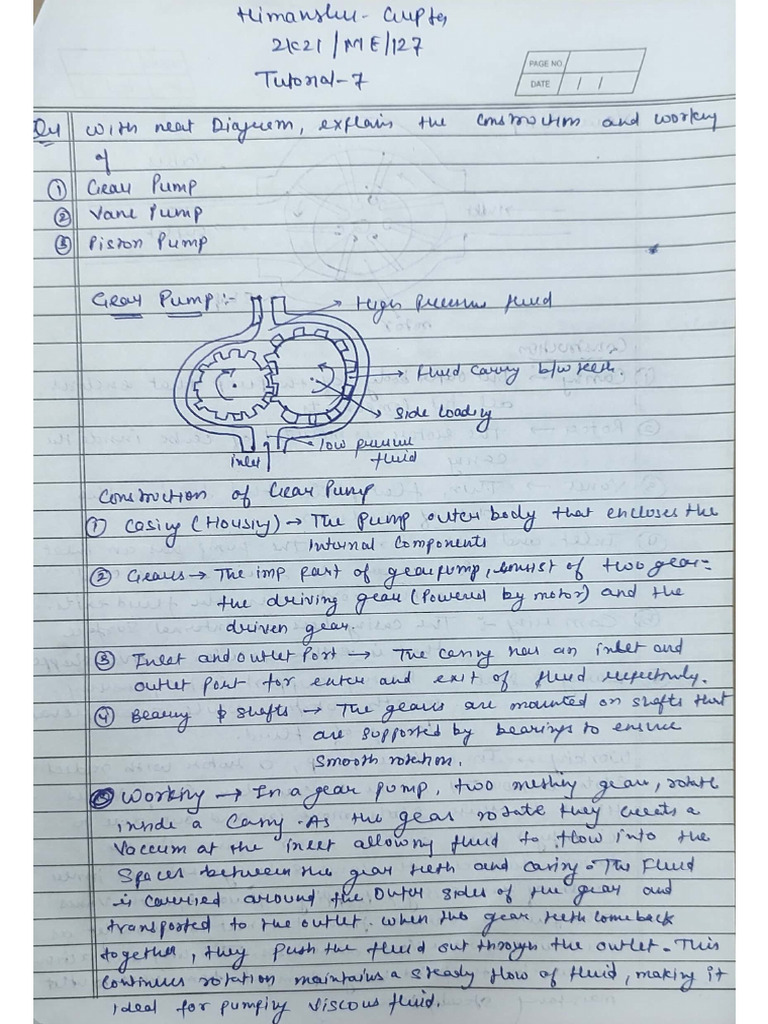 Himanshu - Gupta
2K21/ME/127
Tutorial-7
PAGE NO.
DATE / /
Q1 With neat Diagram, explain the construction and working
of
① Gear Pump
② Vane Pump
③ Piston Pump
Gear Pump:-
High pressure fluid
fluid carry b/w teeth.
side loading
low pressure
fluid
inlet
Construction of Gear Pump
① Casing (Housing) → The pump outer body that encloses the
Internal Components
② Gears → The imp part of gear pump, consist of two gear:
the driving gear (Powered by motor) and the
driven gear.
③ Inlet and outlet Port → The casing has an inlet and
outlet port for enter and exit of fluid respectively.
④ Bearing & shafts → The gears are mounted on shafts that
are supported by bearings to ensure
smooth rotation.
Working → In a gear pump, two meshing gear, rotate
inside a Casing. As the gear rotate they creets a
Vaccum at the inlet allowing fluid to flow into the
Spaces between the gear teeth and casing. The Fluid
is carried around the outer sides of the gear and
transported to the outlet. when the gear teeth come back
together, they push the fluid out through the outlet. This
continues rotation maintains a steady flow of fluid, making it
ideal for pumping viscous fluid.